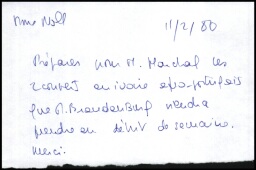 Mme Noll 11/2/80
Préparer pour M. Marchal les
2 couverts en ivoire afro-portugais
que M. Brandenburg viendra
prendre en début de semaine.
Merci.